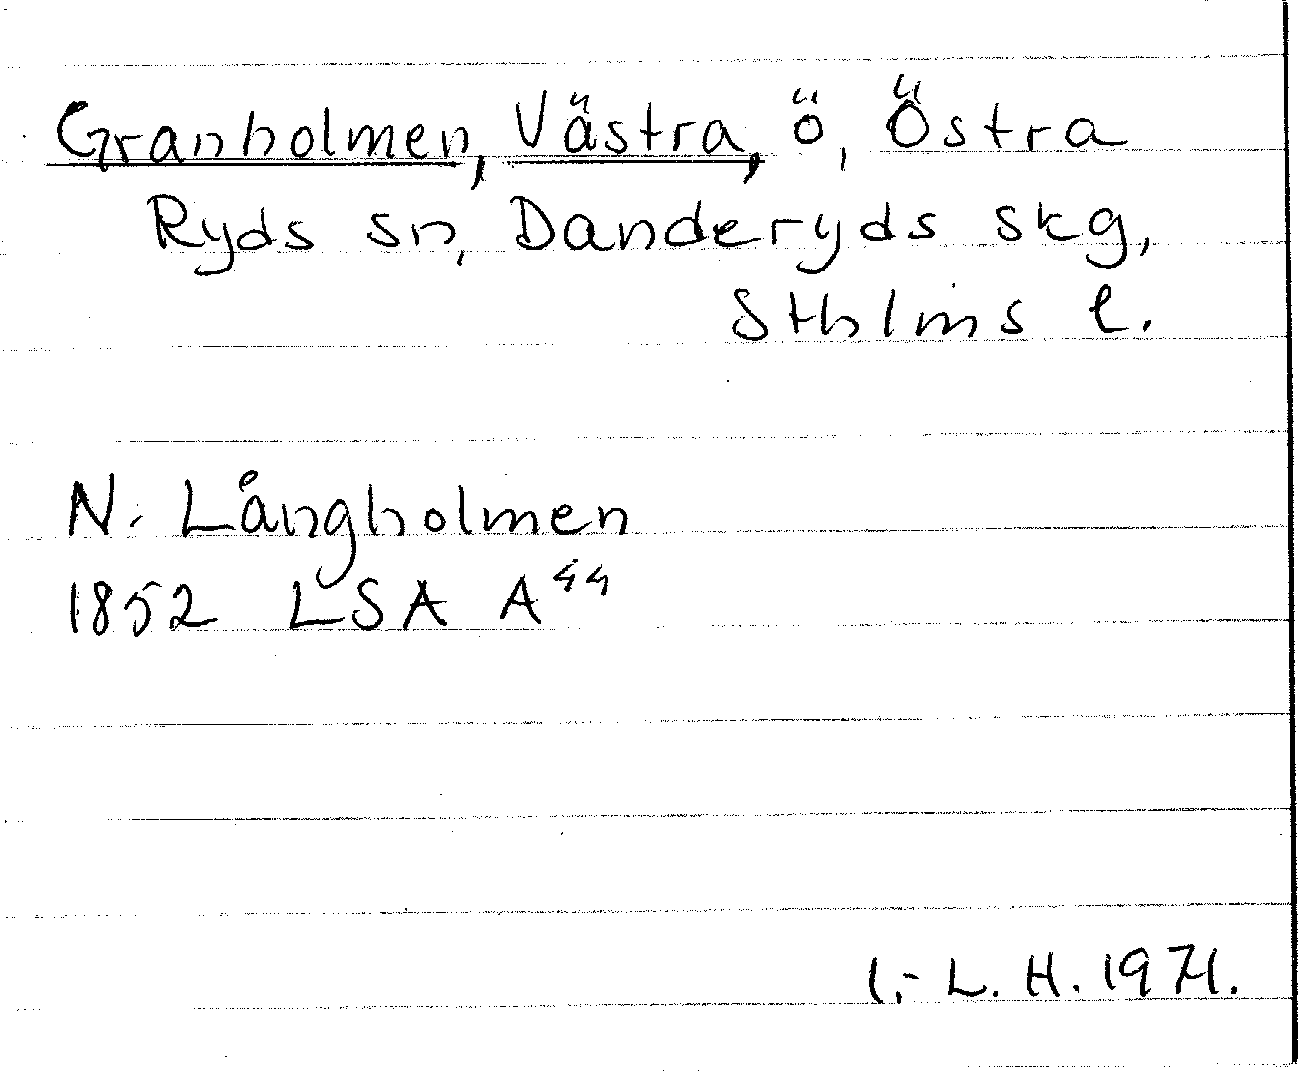 Granholmen, Västra, ö, Östra
Ryds sn, Danderyds skg,
Sthlms l.
N. Långholmen
1852 LSA A⁴⁴
I.-L. H. 1971.